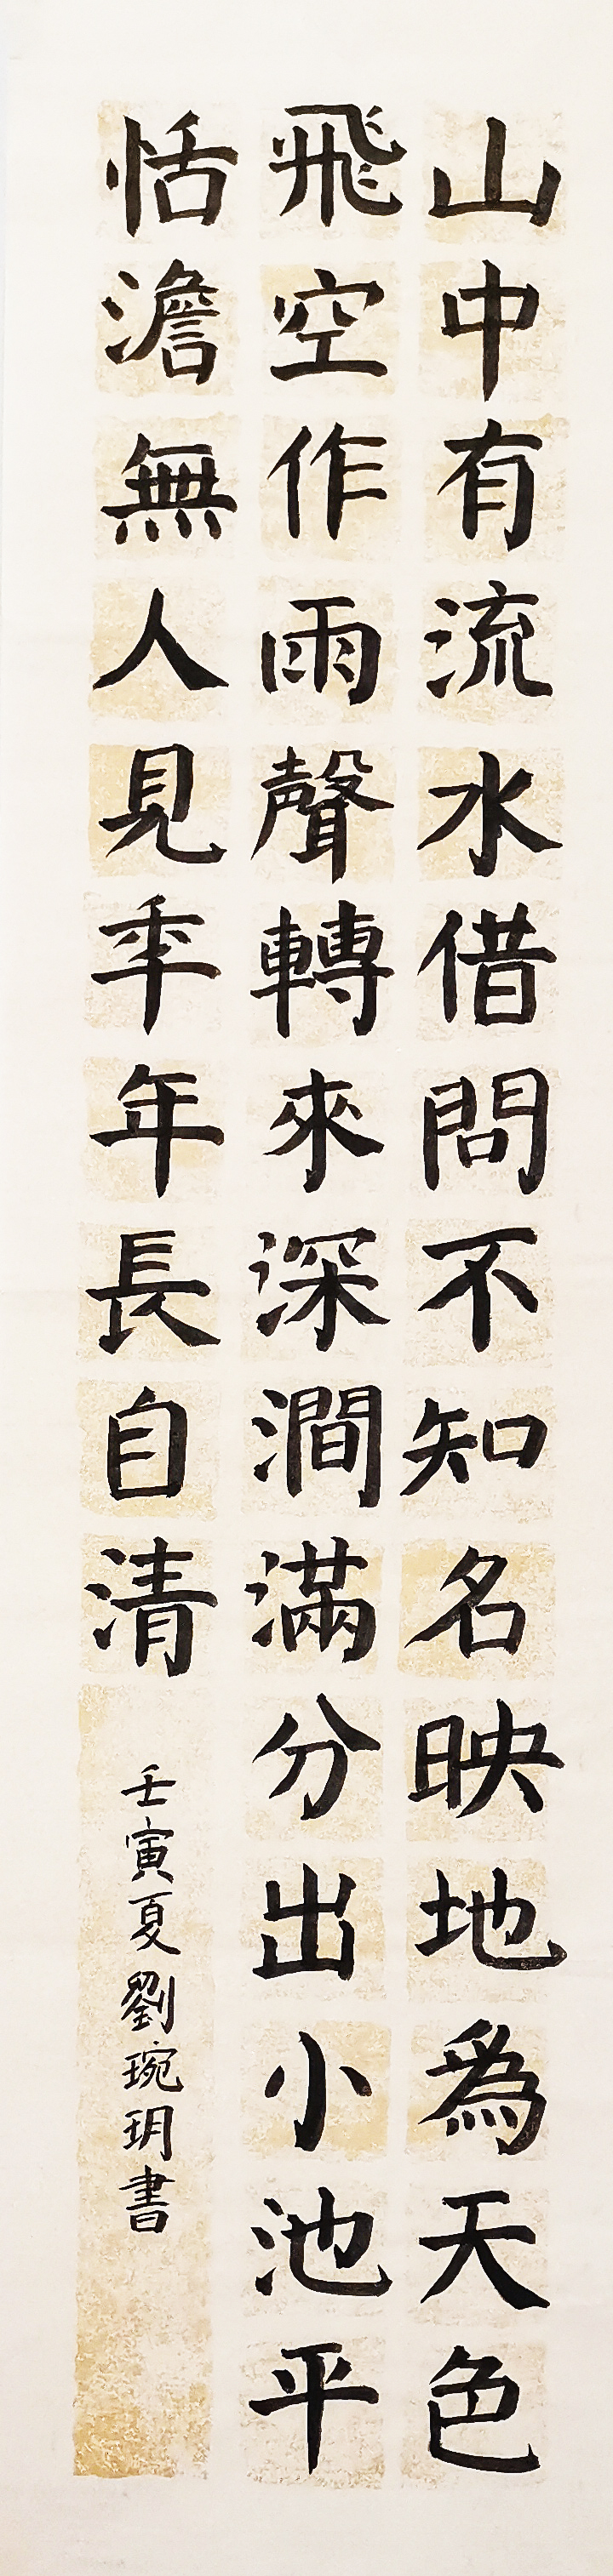 山中有流水借問不知名映地為天色
飛空作雨聲轉來深澗滿分出小池平
恬澹無人見年年長自清
壬寅夏劉琬玥書